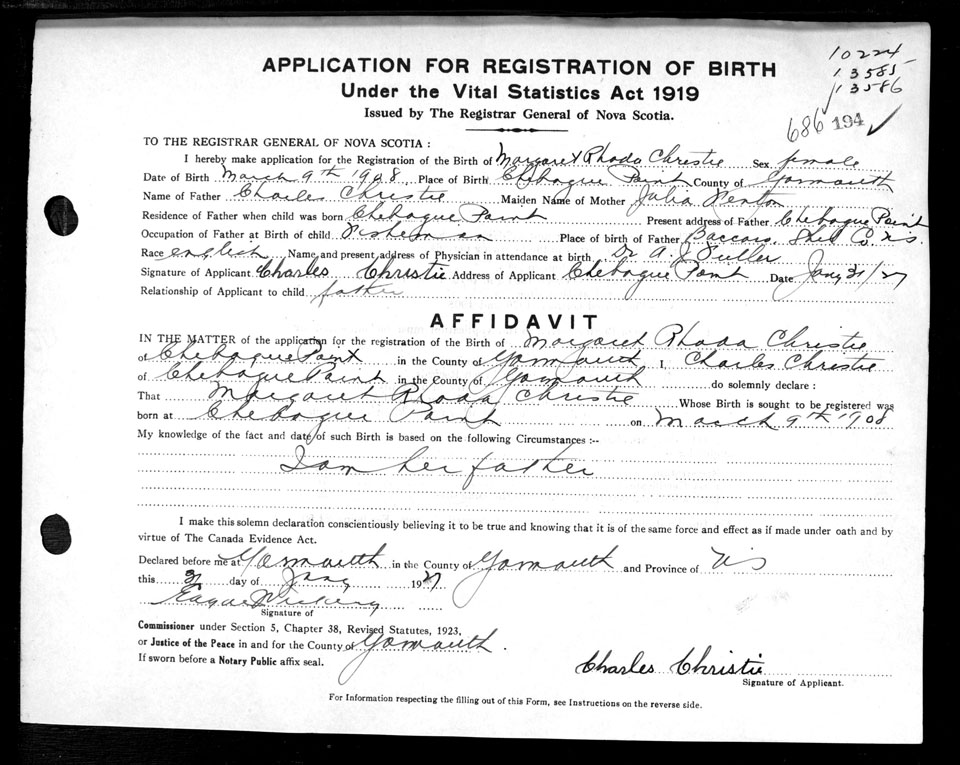 10224
13585
13586
686 194 ✓
APPLICATION FOR REGISTRATION OF BIRTH
Under the Vital Statistics Act 1919
Issued by The Registrar General of Nova Scotia.
TO THE REGISTRAR GENERAL OF NOVA SCOTIA :
I hereby make application for the Registration of the Birth of Margaret Rhoda Christie Sex female
Date of Birth March 9th 1908, Place of Birth Chebogue Point County of Yarmouth
Name of Father Charles Christie Maiden Name of Mother Julia
Residence of Father when child was born Chebogue Point Present address of Father Chebogue Point
Occupation of Father at Birth of child Fisherman Place of birth of Father Baccaro, Shel Co. N.S.
Race english Name and present address of Physician in attendance at birth Dr A. J. Fuller
Signature of Applicant Charles Christie Address of Applicant Chebogue Point Date Jany 31/27
Relationship of Applicant to child father
AFFIDAVIT
IN THE MATTER of the application for the registration of the Birth of Margaret Rhoda Christie
of Chebogue Point in the County of Yarmouth I, Charles Christie
of Chebogue Point in the County of Yarmouth do solemnly declare :
That Margaret Rhoda Christie Whose Birth is sought to be registered was
born at Chebogue Point on March 9th 1908
My knowledge of the fact and date of such Birth is based on the following Circumstances :--
I am her father
I make this solemn declaration conscientiously believing it to be true and knowing that it is of the same force and effect as if made under oath and by
virtue of The Canada Evidence Act.
Declared before me at Yarmouth in the County of Yarmouth and Province of NS
this 31 day of Jany 1927
Signature of
Commissioner under Section 5, Chapter 38, Revised Statutes, 1923,
or Justice of the Peace in and for the County of Yarmouth.
If sworn before a Notary Public affix seal.
Charles Christie
Signature of Applicant.
For Information respecting the filling out of this Form, see Instructions on the reverse side.